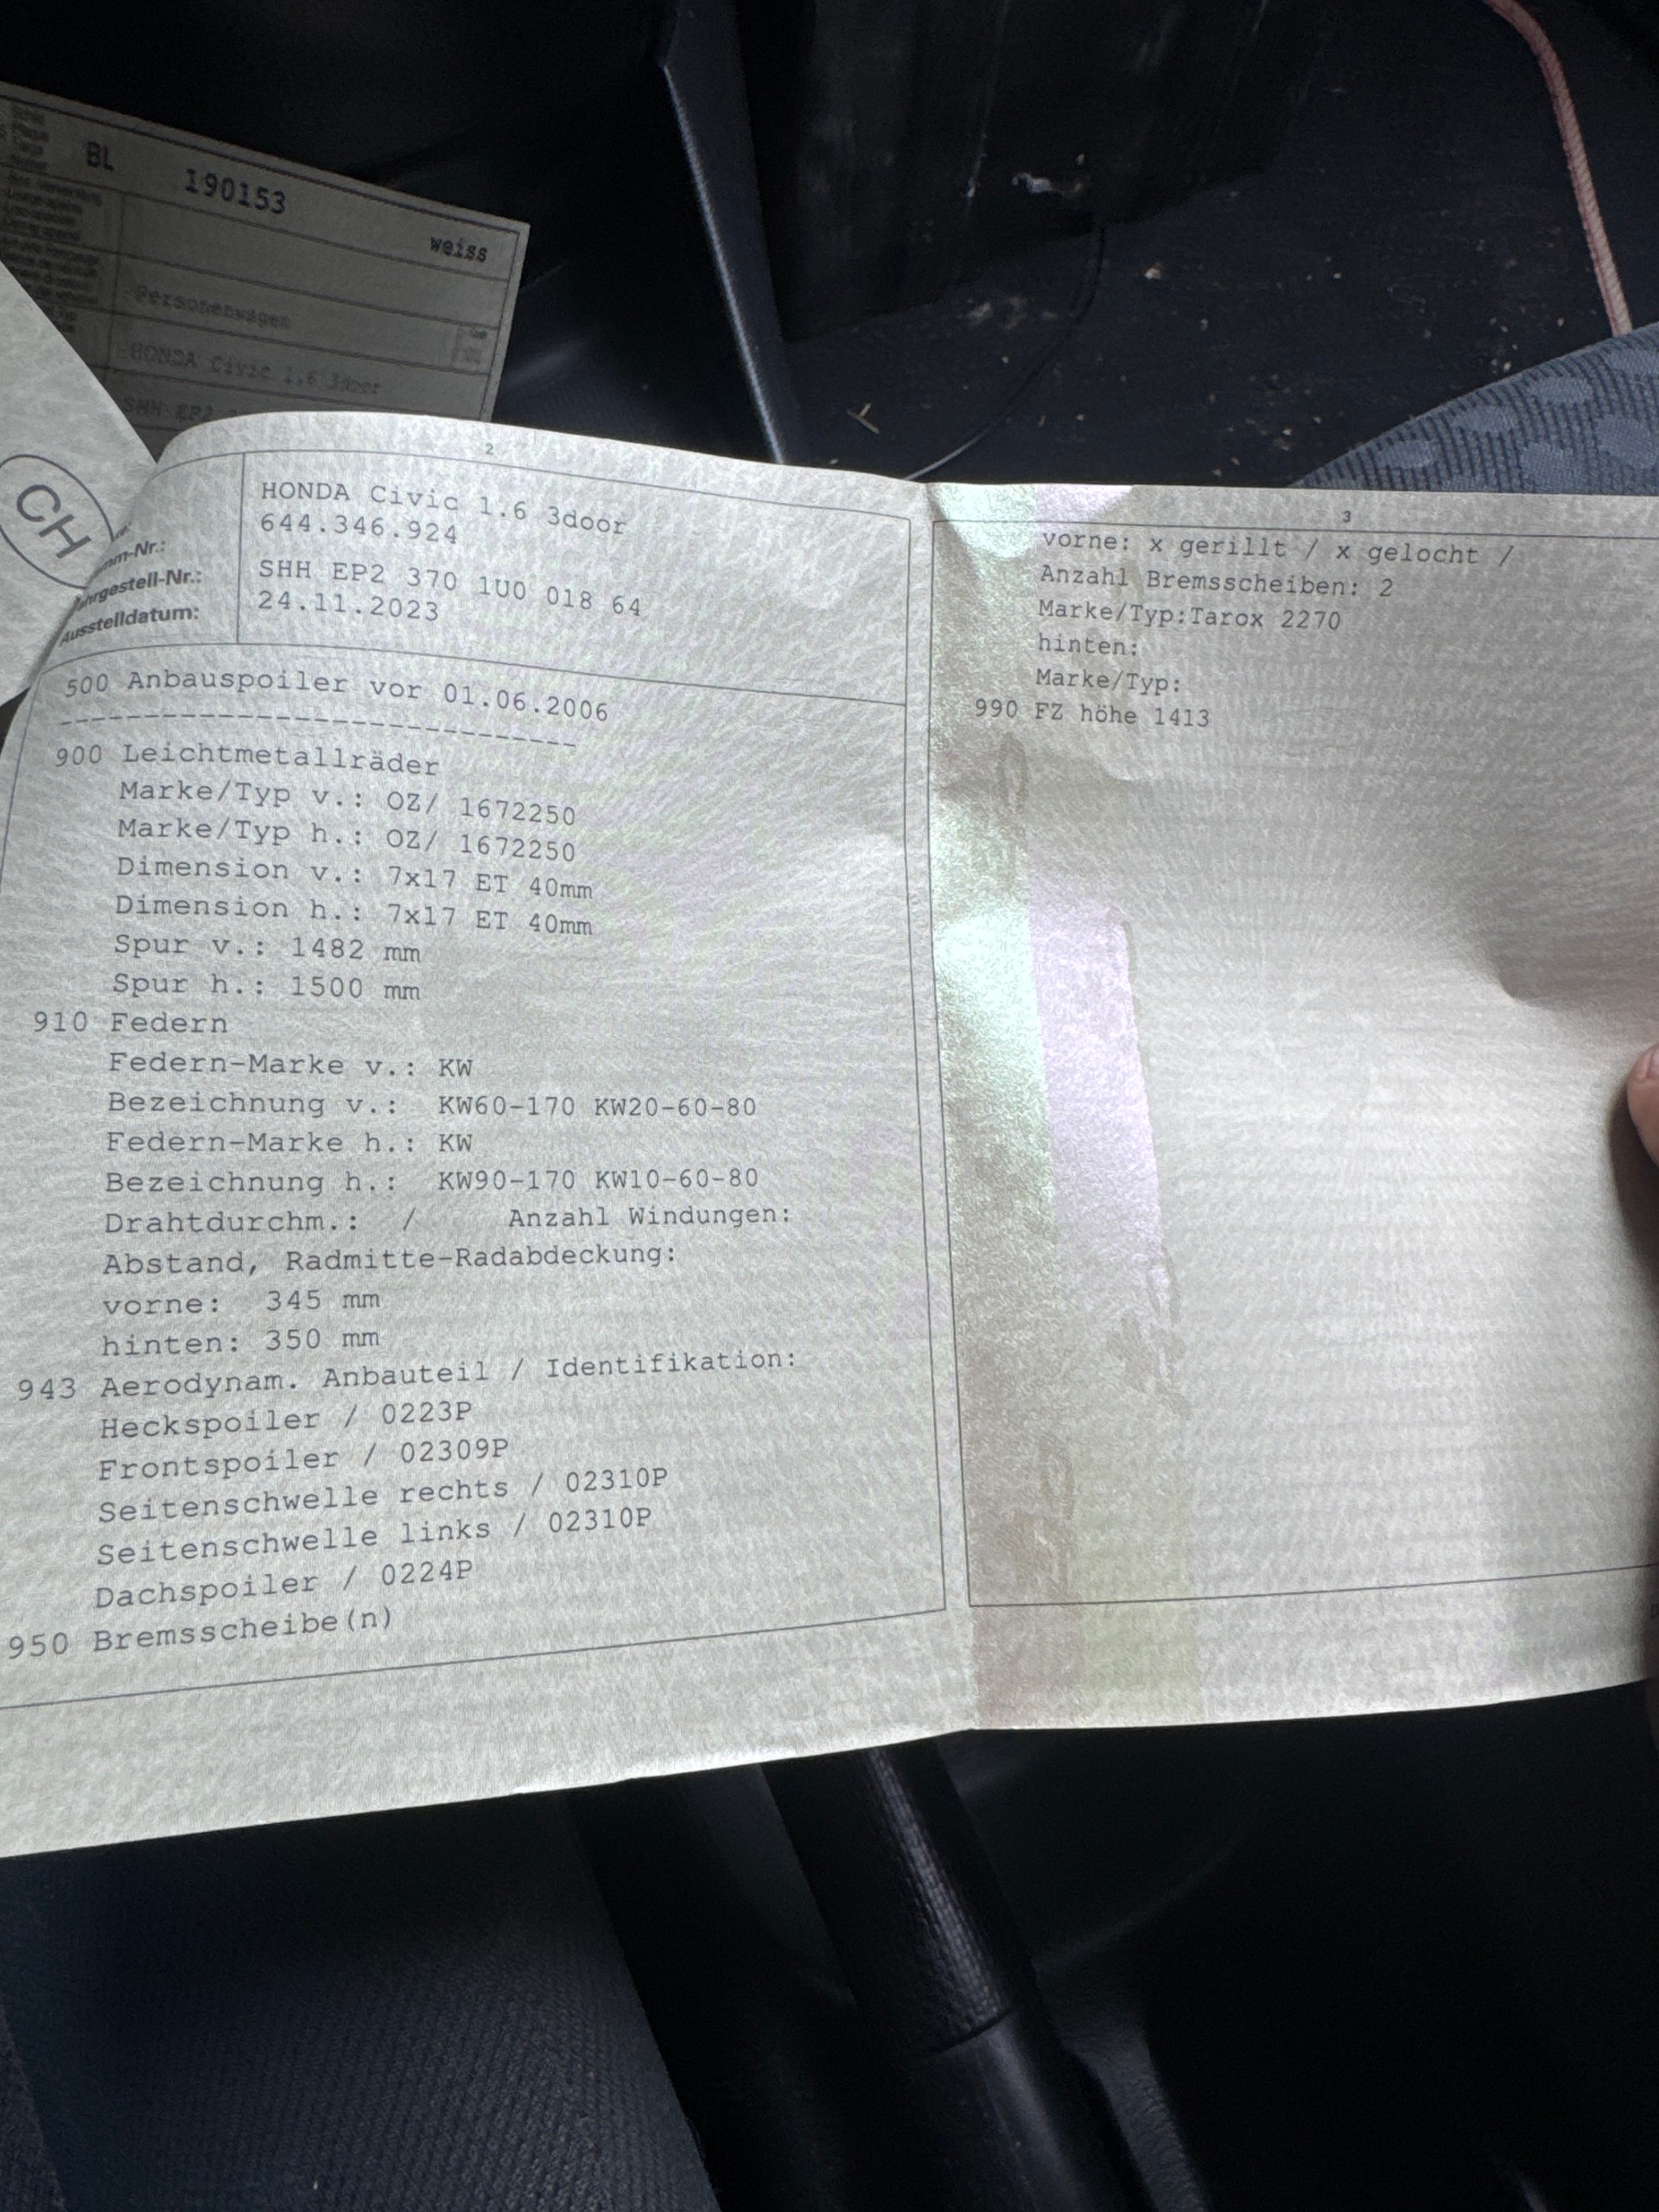 BL 190153
weiss
Personenwagen
HONDA Civic 1.6 3door
SHH EP2
CH
2
HONDA Civic 1.6 3door
644.346.924
SHH EP2 370 1U0 018 64
24.11.2023
Ausstelldatum:
500 Anbauspoiler vor 01.06.2006
------------------------------
900 Leichtmetallräder
Marke/Typ v.: OZ/ 1672250
Marke/Typ h.: OZ/ 1672250
Dimension v.: 7x17 ET 40mm
Dimension h.: 7x17 ET 40mm
Spur v.: 1482 mm
Spur h.: 1500 mm
910 Federn
Federn-Marke v.: KW
Bezeichnung v.: KW60-170 KW20-60-80
Federn-Marke h.: KW
Bezeichnung h.: KW90-170 KW10-60-80
Drahtdurchm.: / Anzahl Windungen:
Abstand, Radmitte-Radabdeckung:
vorne: 345 mm
hinten: 350 mm
943 Aerodynam. Anbauteil / Identifikation:
Heckspoiler / 0223P
Frontspoiler / 02309P
Seitenschwelle rechts / 02310P
Seitenschwelle links / 02310P
Dachspoiler / 0224P
950 Bremsscheibe(n)
3
vorne: x gerillt / x gelocht /
Anzahl Bremsscheiben: 2
Marke/Typ:Tarox 2270
hinten:
Marke/Typ:
990 FZ höhe 1413